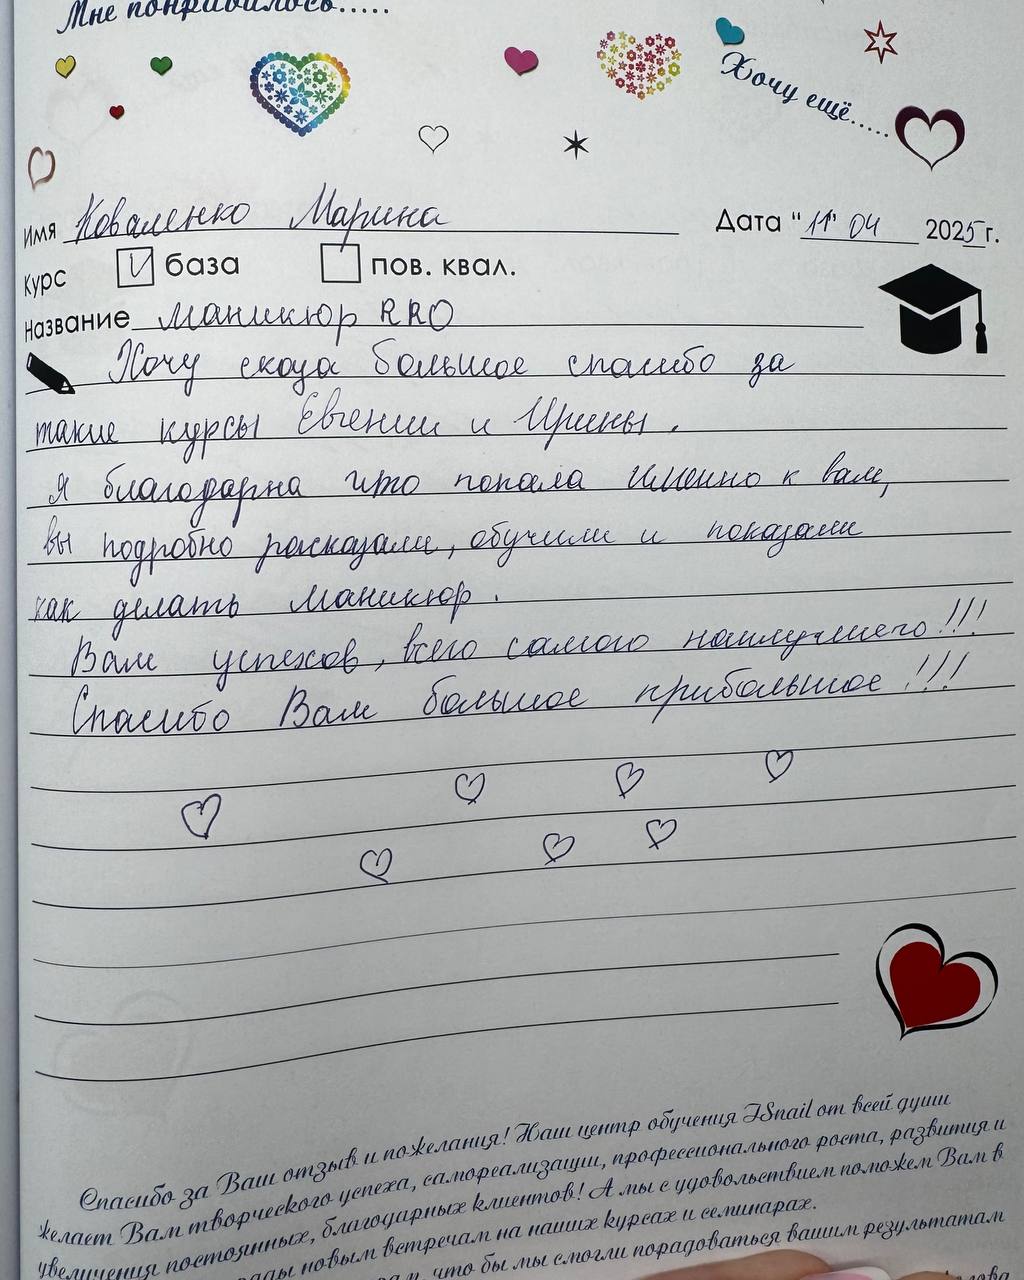 Мне понравилось.....
Хочу ещё.....
Имя Коваленко Марина
Дата "11" 04 2025 г.
Курс V база пов. квал.
Название Маникюр RRO
Хочу скоза большое спасибо за
такие курсы Евгении и Ирины.
Я благодарна что попала именно к вам,
вы подробно расказали, обучили и показали
как делать маникюр.
Вам успехов, всего самого наилучшего!!!
Спасибо Вам большое прибольшое!!!
Спасибо за Ваш отзыв и пожелания! Наш центр обучения ISnail от всей души
желает Вам творческого успеха, самореализации, профессионального роста, развития и
увеличения постоянных, благодарных клиентов! А мы с удовольствием поможем Вам в
новым встречам на наших курсах и семинарах.
что бы мы смогли порадоваться вашим результатам